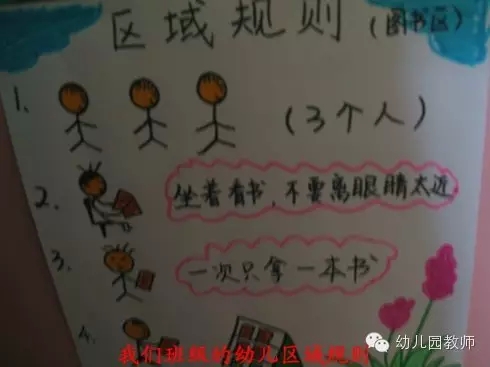 区域规则（图书区）
1. （3个人）
2. 坐着看书，不要离眼睛太近
3. 一次只拿一本书
4.
我们班级的幼儿区域规则
幼儿园教师